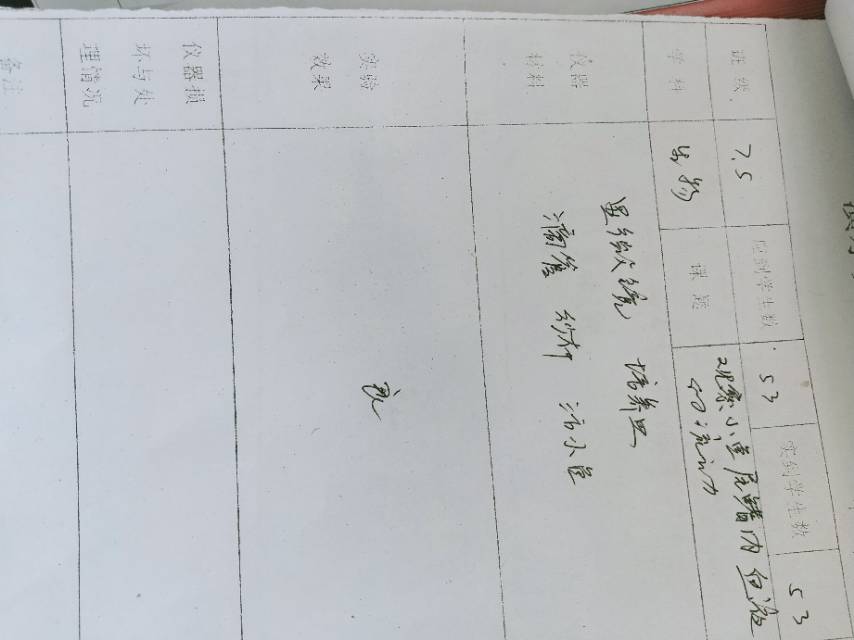 班级 7.5 应到学生数 53 实到学生数 53
学科 生物 课题 观察小鱼尾鳍内血液
的流动
仪器
材料
显微镜 培养皿
滴管 纱布 活小鱼
实验
效果
良
仪器损
坏与处
理情况
备注